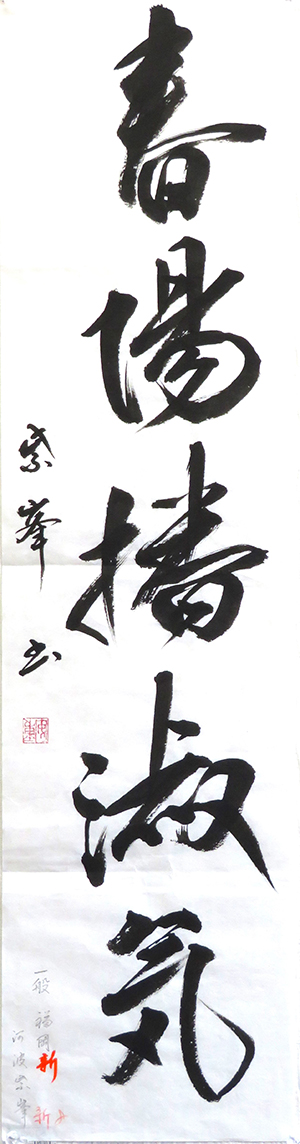 春陽播淑気
紫峯書
一般 福岡 新
河波紫峯 新